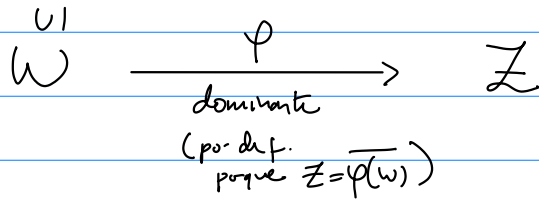 ∪|
W φ Z
dominante
(por def.
porque Z = \overline{φ(W)})